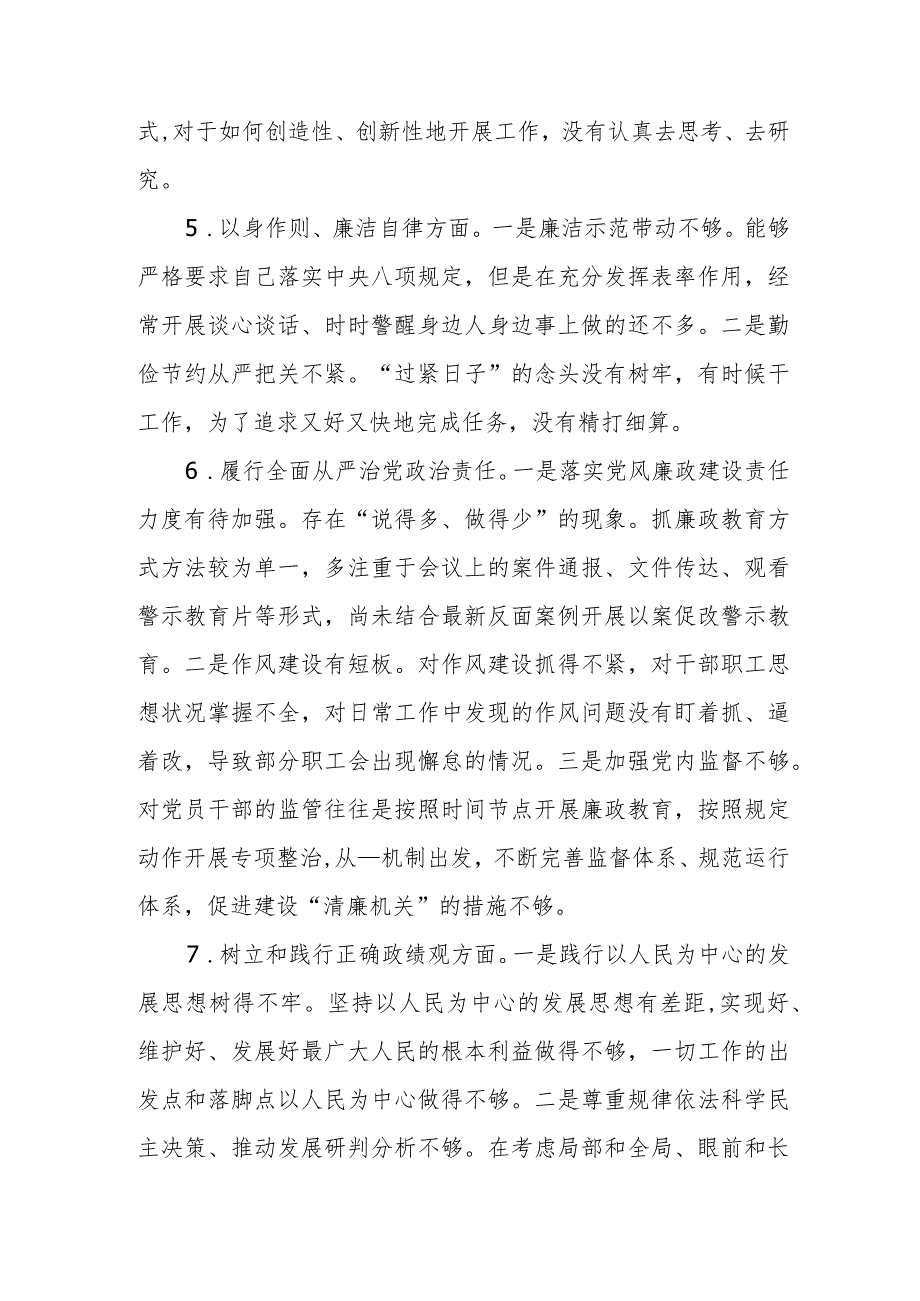 式,对于如何创造性、创新性地开展工作，没有认真去思考、去研
究。
5．以身作则、廉洁自律方面。一是廉洁示范带动不够。能够
严格要求自己落实中央八项规定，但是在充分发挥表率作用，经
常开展谈心谈话、时时警醒身边人身边事上做的还不多。二是勤
俭节约从严把关不紧。“过紧日子”的念头没有树牢，有时候干
工作，为了追求又好又快地完成任务，没有精打细算。
6．履行全面从严治党政治责任。一是落实党风廉政建设责任
力度有待加强。存在“说得多、做得少”的现象。抓廉政教育方
式方法较为单一，多注重于会议上的案件通报、文件传达、观看
警示教育片等形式，尚未结合最新反面案例开展以案促改警示教
育。二是作风建设有短板。对作风建设抓得不紧，对干部职工思
想状况掌握不全，对日常工作中发现的作风问题没有盯着抓、逼
着改，导致部分职工会出现懈怠的情况。三是加强党内监督不够。
对党员干部的监管往往是按照时间节点开展廉政教育，按照规定
动作开展专项整治,从—机制出发，不断完善监督体系、规范运行
体系，促进建设“清廉机关”的措施不够。
7．树立和践行正确政绩观方面。一是践行以人民为中心的发
展思想树得不牢。坚持以人民为中心的发展思想有差距,实现好、
维护好、发展好最广大人民的根本利益做得不够，一切工作的出
发点和落脚点以人民为中心做得不够。二是尊重规律依法科学民
主决策、推动发展研判分析不够。在考虑局部和全局、眼前和长